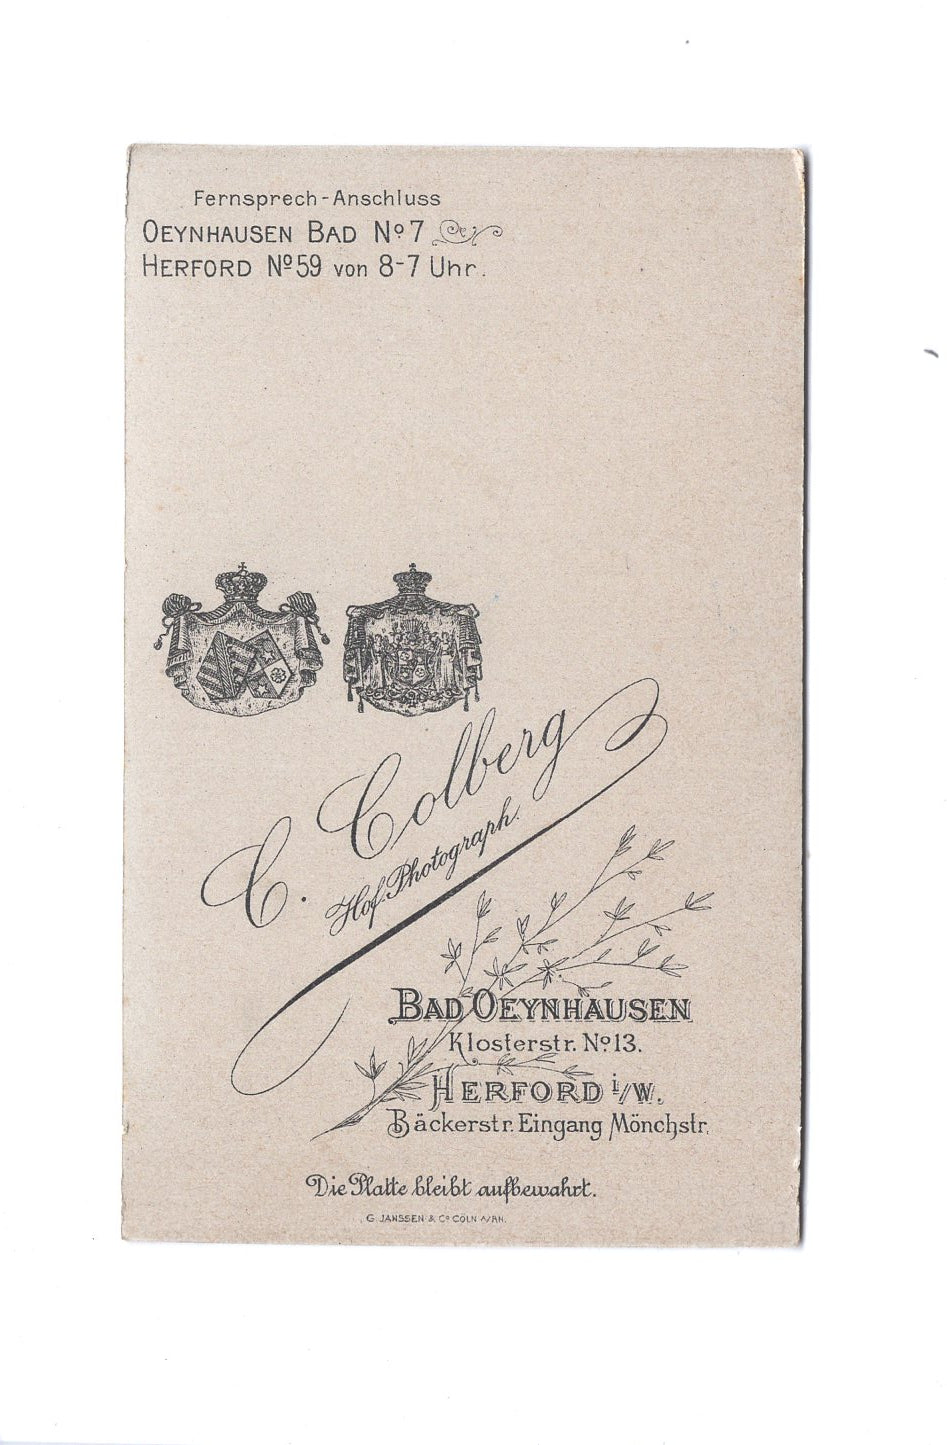 Fernsprech-Anschluss
OEYNHAUSEN BAD Nº 7
HERFORD Nº 59 von 8-7 Uhr.
C. Colberg
Hof-Photograph.
BAD OEYNHAUSEN
Klosterstr. Nº 13.
HERFORD i/W.
Bäckerstr. Eingang Mönchstr.
Die Platte bleibt aufbewahrt.
G. JANSSEN & Cº CÖLN A/RH.